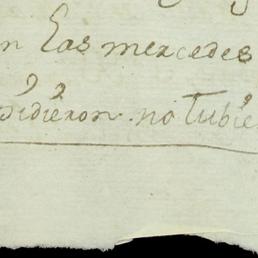 n Las mercedes
pidiéron no tubié